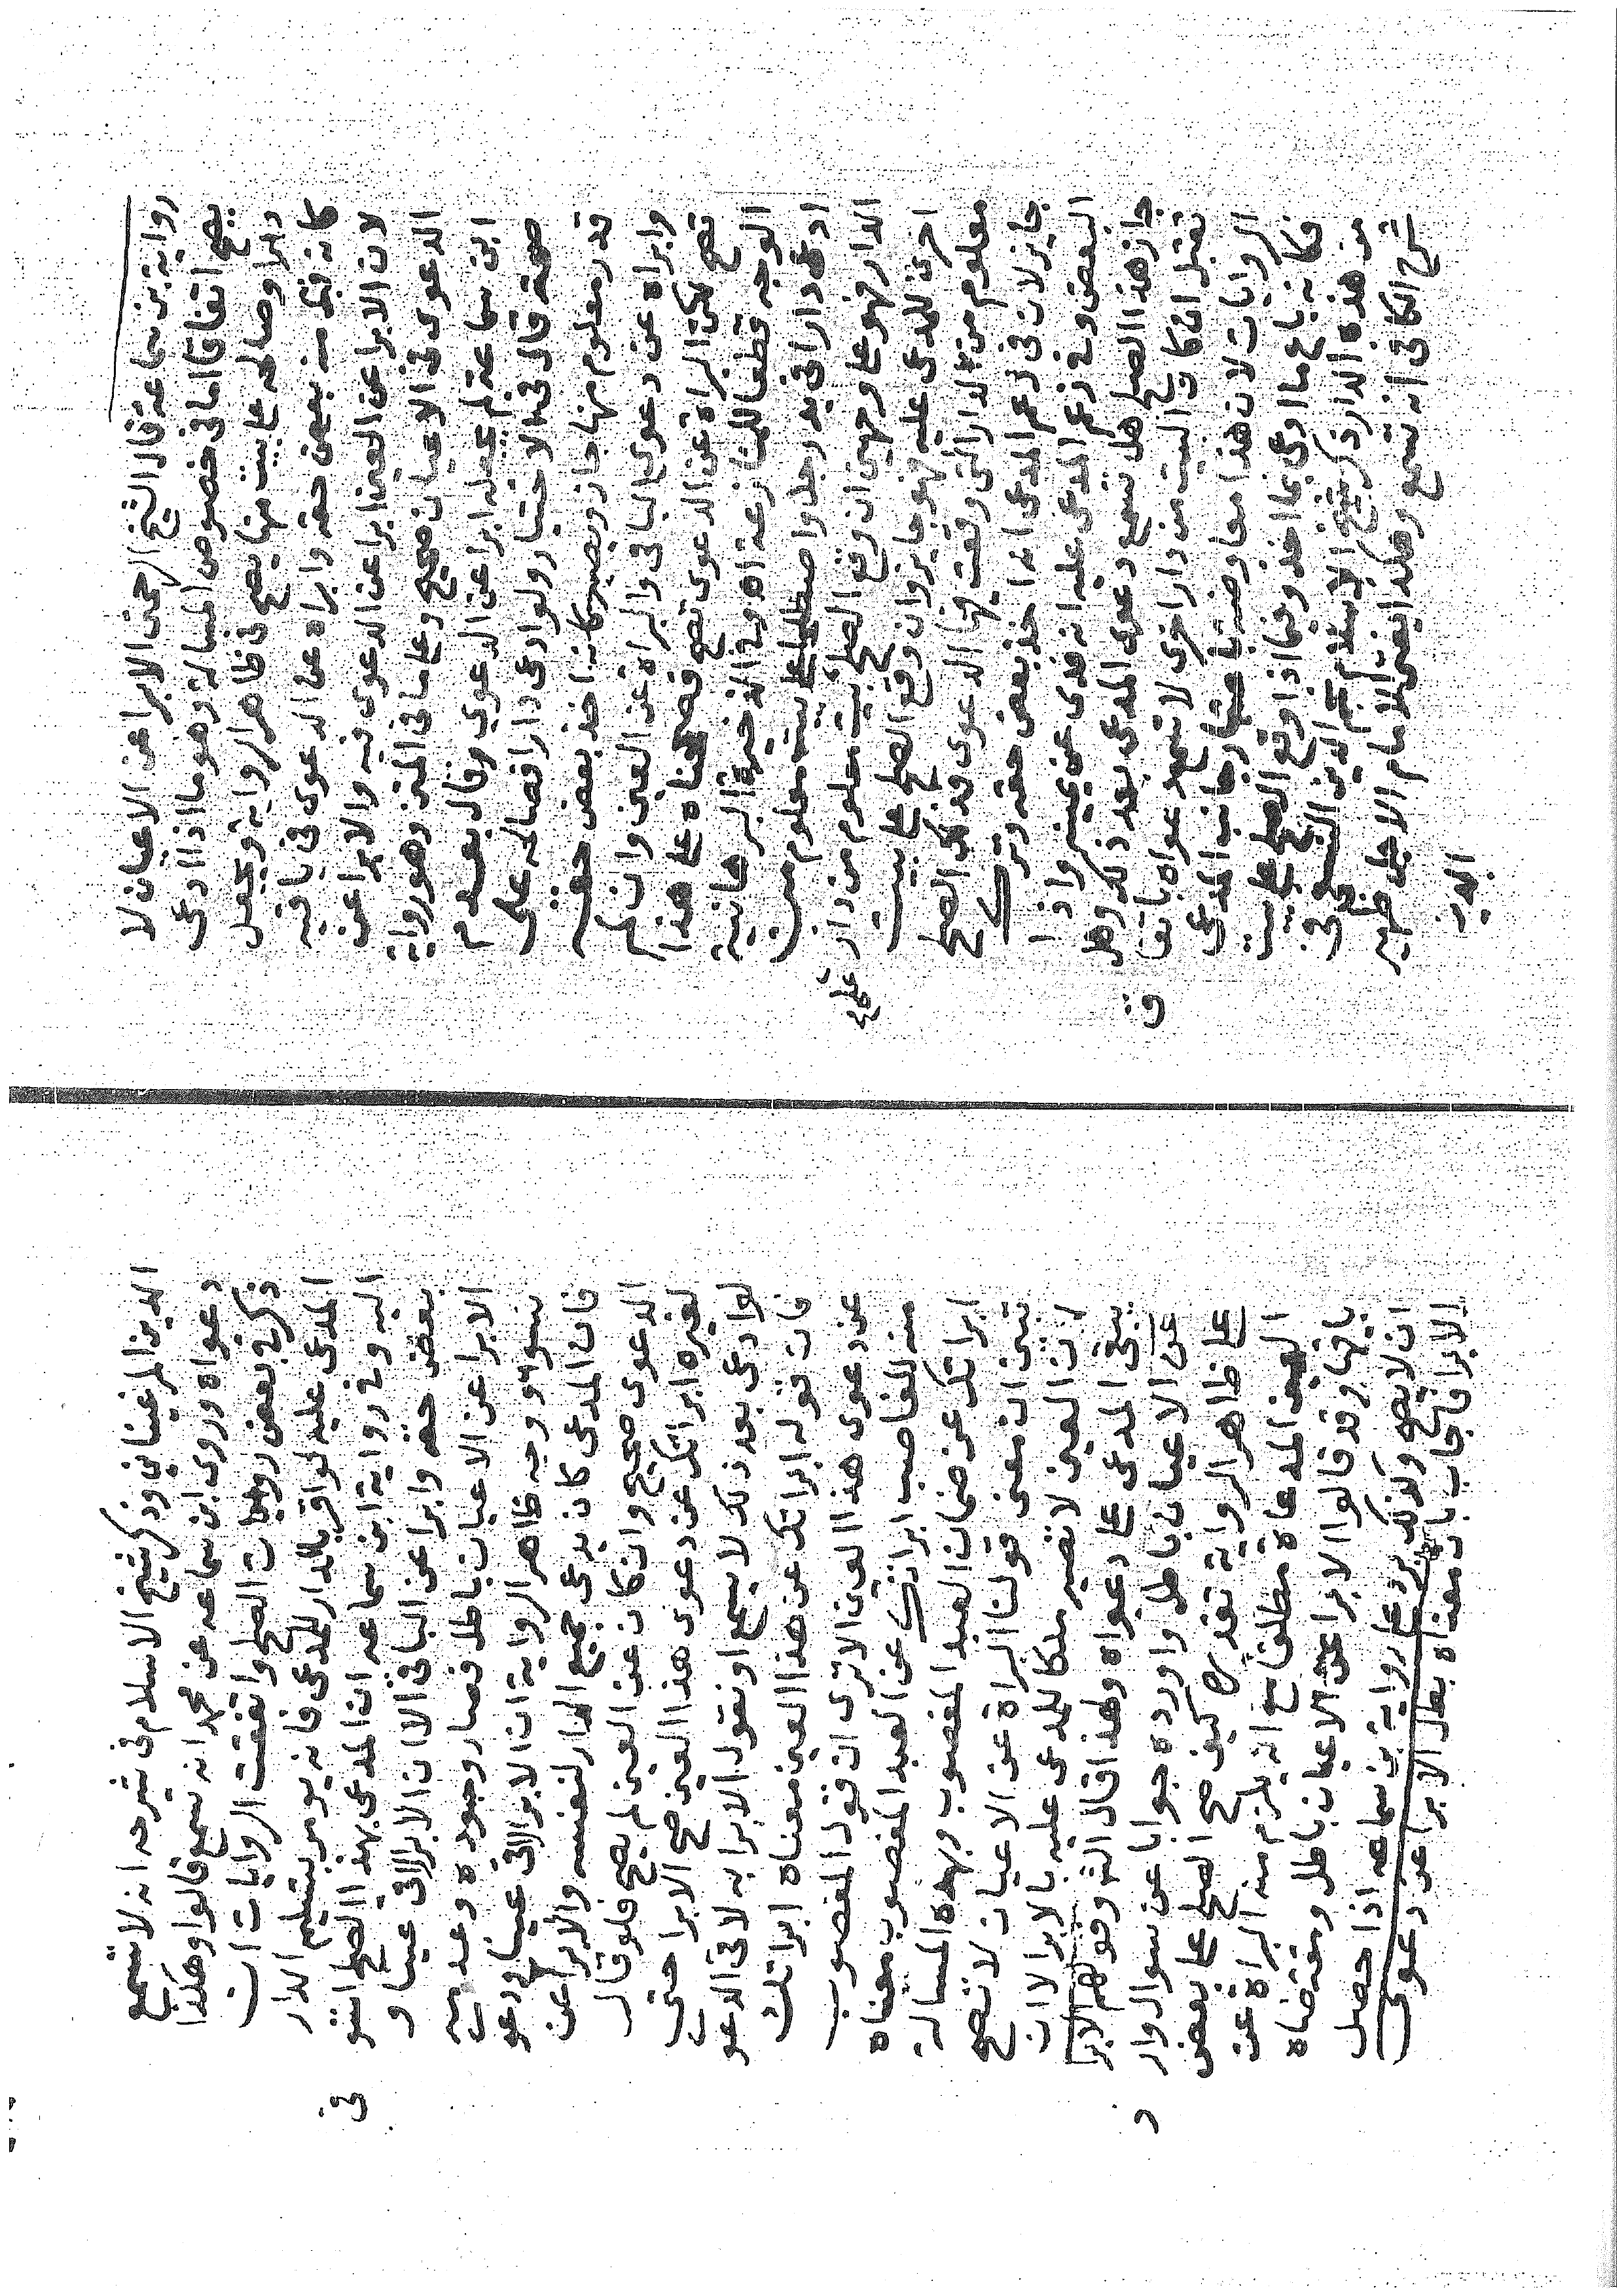 رواية بن سماعة قال الشيخ الرحمتي الابرا عن الاعيان لا
يصح اتفاقا اما في خصوص المسالة وهو ما اذا ادعى
دارا وصالحه على بيت منها يصح في ظاهر الرواية ويجعل
كانه قبض منه بعض حقه وابراه عن الدعوى في باقيه
لان الابرا عن العين ابرا عن الدعوى فيه والابرا عن
الدعوى في الاعيان صحيح وعلى ما في المتن وهو رواية
ابن سماعة لم يجعله ابرا عن الدعوي وقال بعدم
صحته قال في الاختيار ولو ادعى دارا فصالحه على
قدر معلوم منها جاز ويصير كانه اخذ بعض حقه
وابراه عن دعوى الباقي والبراة عن العين وان لم
تصح لكن البراة عن الدعوى تصح فصححناه على هذا
الوجه قطعا للمنازعة اه وفي الذخيرة البرهانية
ادعى دارا في يد رجل واصطلحا على بيت معلوم من
الدار فهو على وجهين ان وقع الصلح بيت معلوم من دار على
اخرى للمدعى عليه فهو جايز وان وقع الصلح على بيت
معلوم من الدار التى وقعت فيها الدعوى فذلك الصلح
جايز لان في زعم المدعى انه اخذ بعض حقه وترك
البعض وفي زعم المدعى عليه انه فدى عن يمينه واذا
جاز هذا الصلح هل تسمع دعوى المدعى بعد ذلك وهل
تقبل ان كان البيت من دار اخرى لا تسمع دعواه باتفاق
الروايات لان هذا معاوضة باعتبار جانب المدعى
فكانه باع ما ادعى بما اخذ وفيما اذا وقع الصلح على بيت
من هذه الدار ذكر شيخ الاسلام نجم الدين النسفي في
شرح الكافى انه تسمع وهكذا يفتى الامام الاجل ظهير
الدين
الدين المرغيناني وذكر شيخ الاسلام في شرحه انه لا تسمع
دعواه وروى ابن سماعه عن محمد انه تسمع قالوا وهكذا
ذكر في بعض روايات الصلح واتفقت الروايات ان
المدعى عليه لو اقر بالدار للمدعى فانه يومر بتسليم الدار
اليه وفي رواية ابن سماعه ان المدعى بهذا الصلح استوفى
بعض حقه وابرا عن الباقى الا ان الابرا لاقى عينا و
الابرا عن الاعيان باطل فصار وجوده وعدمه
ووجه ظاهر الرواية ان الابرا لاقى عينا ودعو
فان المدعى كان يدعى جميع الدار لنفسه والابرا عن
الدعوى صحيح وان كان عن العين لم يصح فلو قال
لغيره ابراتك عن دعوى هذا العين صح الابرا حتى
لو ادعى بعد ذلك لا يسمع او نقول الابرا به لاقى الدعو
فان قوله ابراتك عن هذا العين معناه ابراتك
عن دعوى هذا العين الا ترى ان قول المغصوب
منه للغاصب ابراتك عن العبد المغصوب معناه
ابراتك عن ضمان العبد المغصوب وبهذه المسالة
تبين ان معنى قولنا البراة عن الاعيان لا تصح
لان العين لا تصير ملكا للمدعى عليه بالابرا لا ان
يبقى المدعى على دعواه ولهذا قال الش وقولهم الابرا
عن الاعيان باطل واورده جوابا عن سوال وارد
على ظاهر الرواية تقديره كيف صح الصلح على بعض
العين المدعاة مطلقا مع انه يلزم منه البراة عن
باقيها وقد قالوا الابرا عن الاعيان باطل ومقتضاه
ان لا يصح وكذلك يرد على رواية بن سماعه اذا حصل
الابرا فاجاب بان معناه بطل الابرا عن دعوى